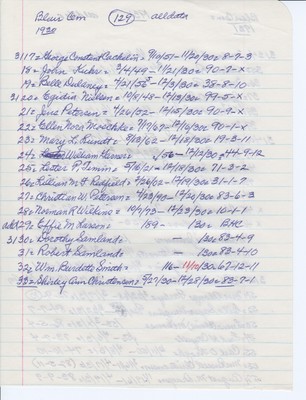 Blair Cem (129) alldata
1930
3117= George Constant Rachlin= 9/10/57-11/20/30= 8-7-3
18= John Kuhr= 3/4/49-11/21/30= 90-7-x
19= Belle Dudney= 4/21/55-12/3/30= 38-8-10
3120= Egidia Nielsen= 10/8/48-12/13/30= 99-5-x
21= Jens Petersen= 4/26/52-12/15/30= 90-9-x
22= Ellen Nora Maschke= 11/9/67-12/16/30= 90-1-x
23= Mary L. Lundt= 8/13/62-12/18/30= 19-3-11
24= William Kasner= 1/56-12/12/30= 44-9-12
25= Lester P. Timm= 5/16/21-12/18/30= 71-3-2
26= Lillian M. Redfield= 4/26/02-12/19/30= 31-1-7
27= Christian W. Petersen= 4/23/90-12/20/30= 83-6-3
28= Norman R. Wilkins= 10/4/73-12/23/30= 10-1-1
29= Effie M. Larsen= 189 - 130=
3130= Dorothy Semland= - 130= 83-4-9
31= Robert Semland= - 130= 83-4-10
32= Wm. Burdette Smith= 116-11/12/30= 67-12-11
33= Shirley Ann Christensen= 5/27/30-12/28/30= 83-7-1